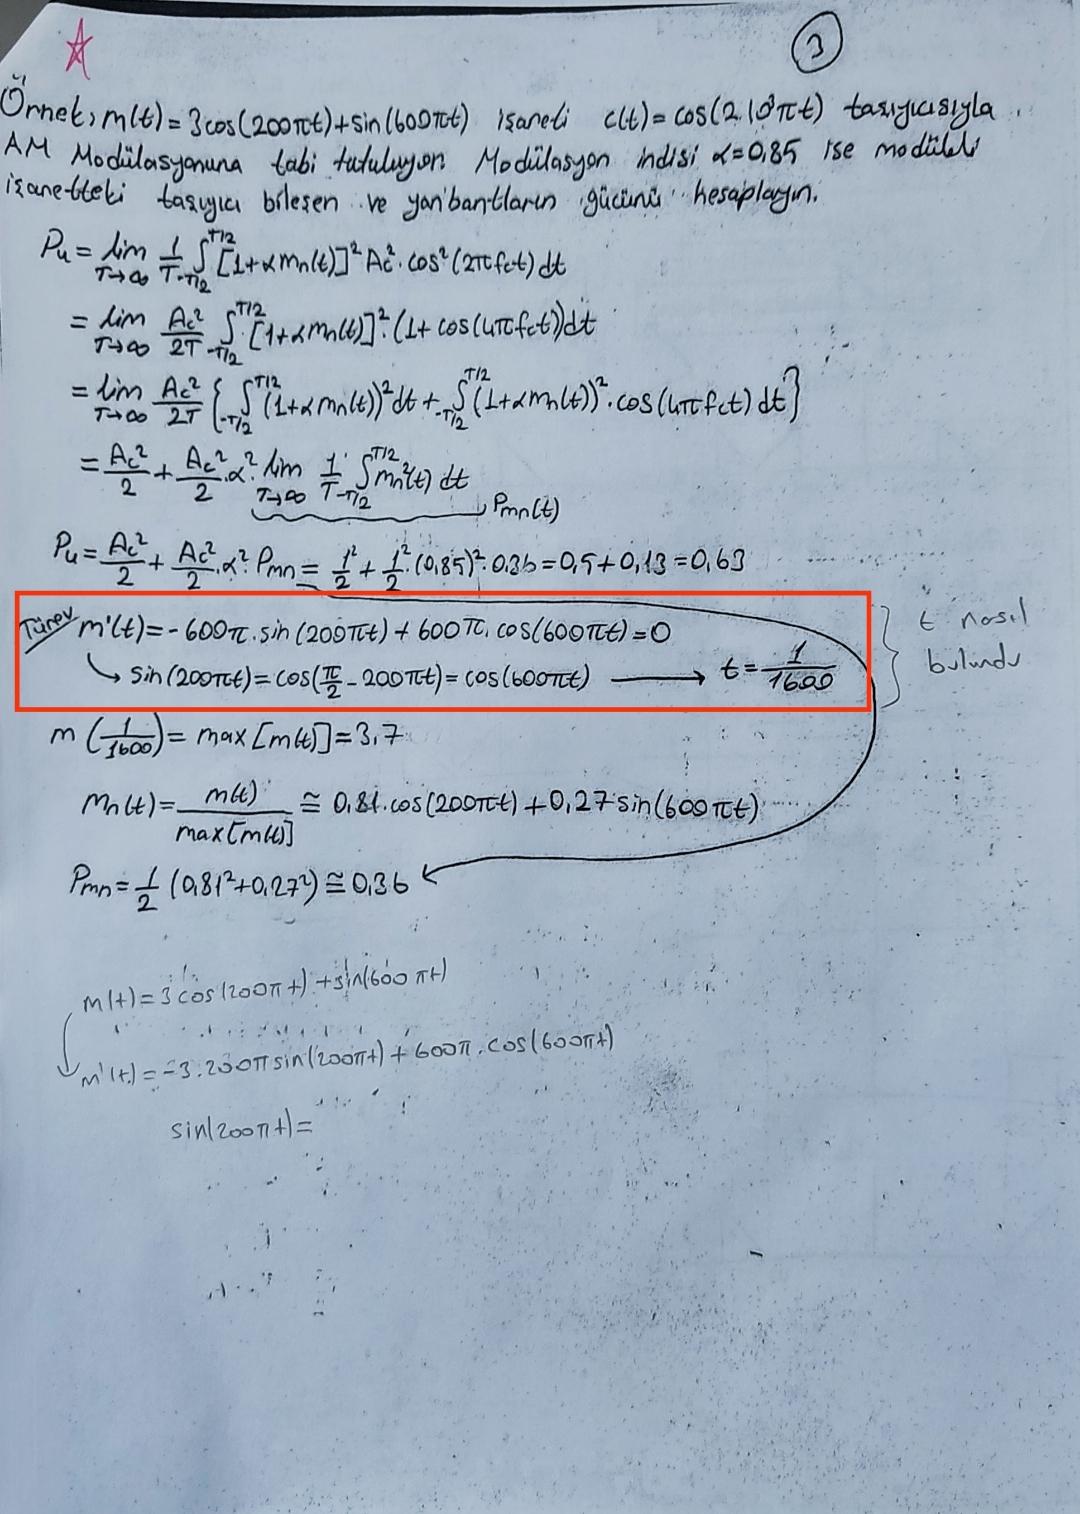 3
Örnek, m(t) = 3cos(200πt)+sin(600πt) işareti c(t) = cos(2.10⁸πt) taşıyıcısıyla
AM Modülasyonuna tabi tutuluyor. Modülasyon indisi α=0,85 ise modüleli
işaretteki taşıyıcı bileşen ve yanbantların gücünü hesaplayın.
Pu = lim T→∞ 1/T ∫_{-T/2}^{T/2} [1+αmn(t)]² Ac². cos²(2πfct) dt
= lim T→∞ Ac²/2T ∫_{-T/2}^{T/2} [1+αmn(t)]². (1+ cos(4πfct))dt
= lim T→∞ Ac²/2T { ∫_{-T/2}^{T/2} (1+αmn(t))² dt + ∫_{-T/2}^{T/2} (1+αmn(t))². cos(4πfct) dt }
= Ac²/2 + Ac²/2 .α². lim T→∞ 1/T ∫_{-T/2}^{T/2} mn²(t) dt
Pmn(t)
Pu = Ac²/2 + Ac²/2 .α². Pmn = 1²/2 + 1²/2 . (0,85)². 0.36 = 0,5 + 0,13 = 0,63
Türev m'(t) = -600π. sin(200πt) + 600π. cos(600πt) = 0
↳ sin(200πt) = cos(π/2 - 200πt) = cos(600πt) → t = 1/1600
t nasıl
bulundu
m(1/1600) = max[m(t)] = 3,7
Mn(t) = m(t)/max[m(t)] ≅ 0,81.cos(200πt) + 0,27sin(600πt)
Pmn = 1/2 (0,81²+0,27²) ≅ 0,36
m(t) = 3 cos(200πt) + sin(600πt)
m'(t) = -3.200π sin(200πt) + 600π. cos(600πt)
sin(200πt) =